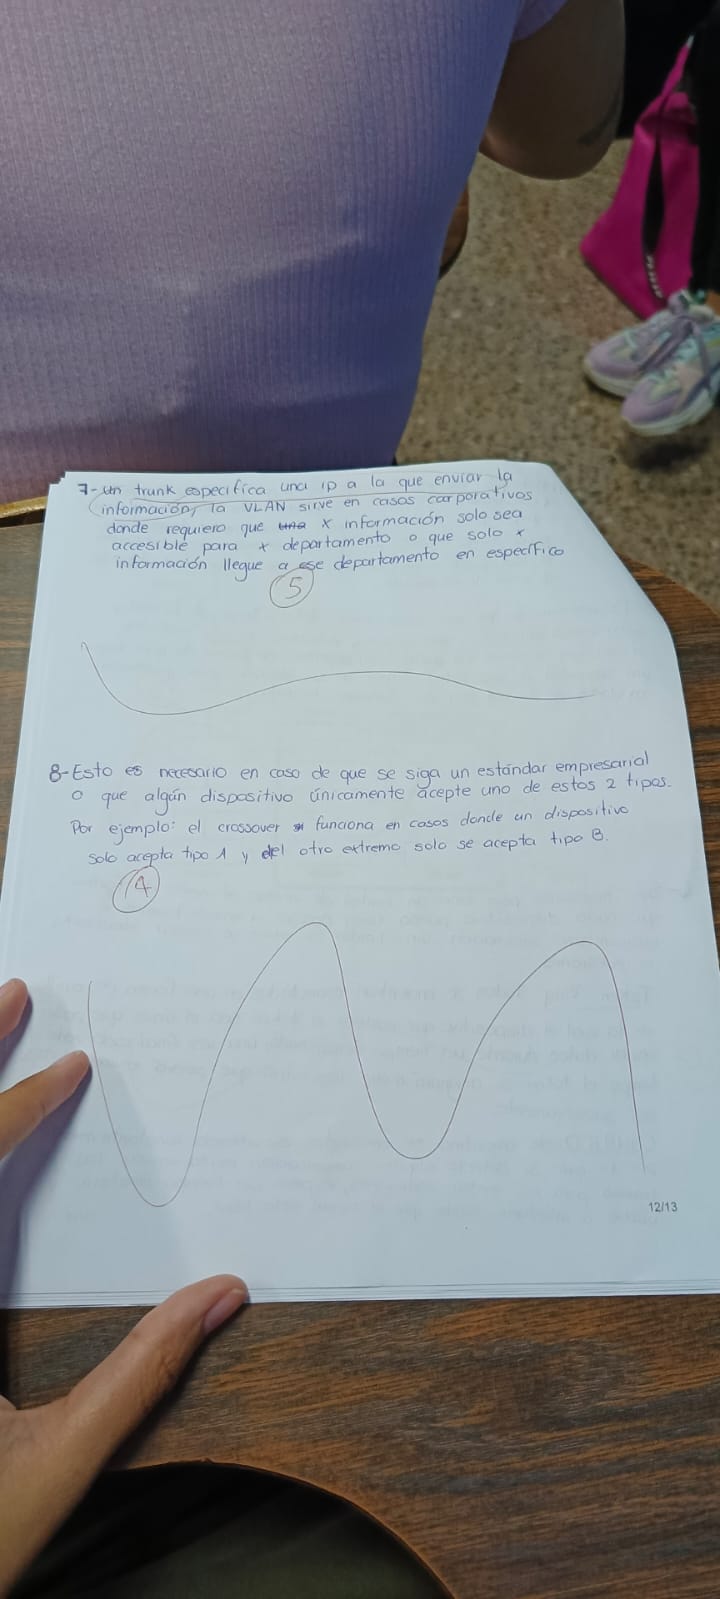 7-Un trunk especifica una IP a la que enviar la
información, la VLAN sirve en casos corporativos
donde requiero que una x información solo sea
accesible para x departamento o que solo x
información llegue a ese departamento en específico
5
8-Esto es necesario en caso de que se siga un estándar empresarial
o que algún dispositivo únicamente acepte uno de estos 2 tipos.
Por ejemplo: el crossover funciona en casos donde un dispositivo
solo acepta tipo A y del otro extremo solo se acepta tipo B.
4
12/13